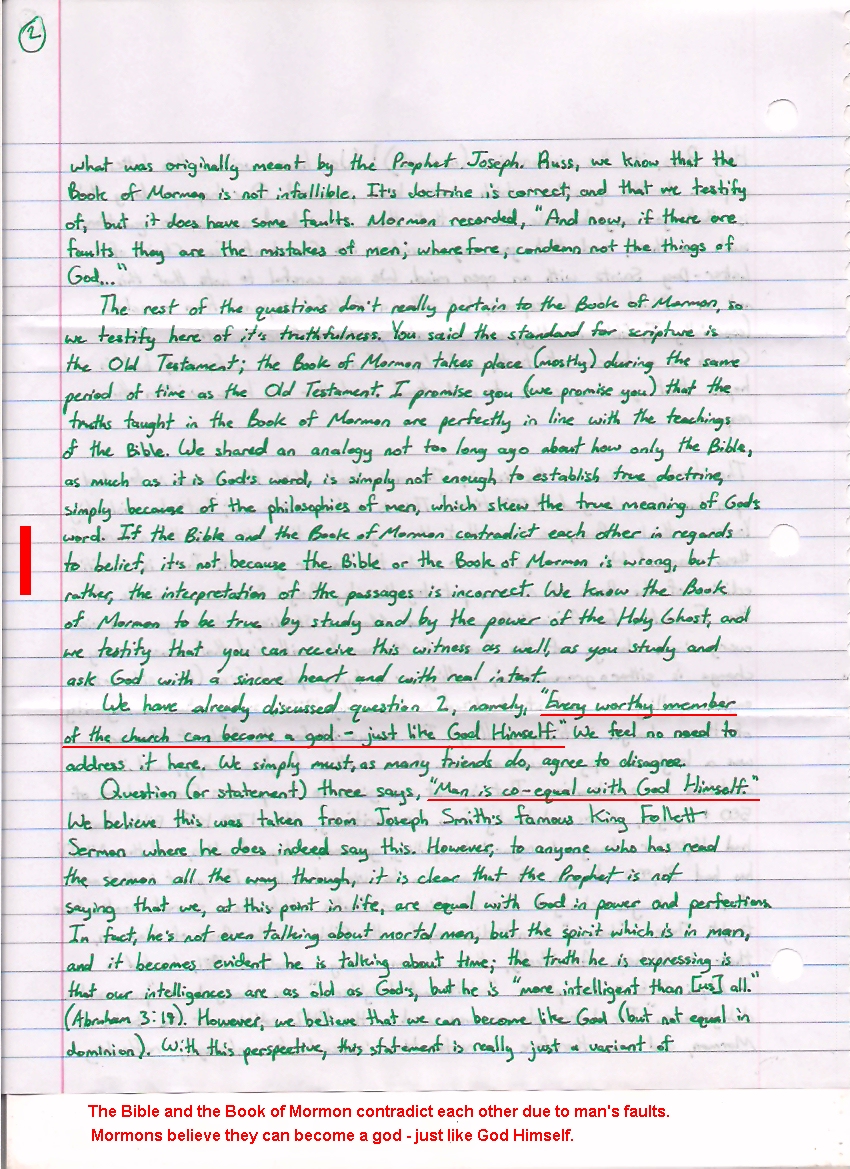 2
what was originally meant by the Prophet Joseph. Russ, we know that the
Book of Mormon is not infallible. It's doctrine is correct, and that we testify
of, but it does have some faults. Mormon recorded, "And now, if there are
faults they are the mistakes of men; wherefore, condemn not the things of
God..."
The rest of the questions don't really pertain to the Book of Mormon, so
we testify here of it's truthfulness. You said the standard for scripture is
the Old Testament; the Book of Mormon takes place (mostly) during the same
period of time as the Old Testament. I promise you (we promise you) that the
truths taught in the Book of Mormon are perfectly in line with the teachings
of the Bible. We shared an analogy not too long ago about how only the Bible,
as much as it is God's word, is simply not enough to establish true doctrine,
simply because of the philosophies of men, which skew the true meaning of God's
word. If the Bible and the Book of Mormon contradict each other in regards
to belief, it's not because the Bible or the Book of Mormon is wrong, but
rather, the interpretation of the passages is incorrect. We know the Book
of Mormon to be true by study and by the power of the Holy Ghost, and
we testify that you can receive this witness as well, as you study and
ask God with a sincere heart and with real intent.
We have already discussed question 2, namely, "Every worthy member
of the church can become a god - just like God Himself." We feel no need to
address it here. We simply must, as many friends do, agree to disagree.
Question (or statement) three says, "Man is co-equal with God Himself."
We believe this was taken from Joseph Smith's famous King Follett
Sermon where he does indeed say this. However, to anyone who has read
the sermon all the way through, it is clear that the Prophet is not
saying that we, at this point in life, are equal with God in power and perfection.
In fact, he's not even talking about mortal men, but the spirit which is in man,
and it becomes evident he is talking about time; the truth he is expressing is
that our intelligences are as old as God's, but he is "more intelligent than [us] all."
(Abraham 3:19). However, we believe that we can become like God (but not equal in
dominion). With this perspective, this statement is really just a variant of
The Bible and the Book of Mormon contradict each other due to man's faults.
Mormons believe they can become a god - just like God Himself.